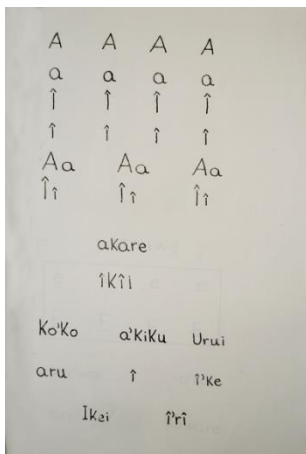 A A A A
a a a a
Î Î Î Î
î î î î
Aa Aa Aa
Îî Îî Îî
akare
îKîi
Ko'Ko a'KiKu Urui
aru î î'Ke
Ikei î'rî